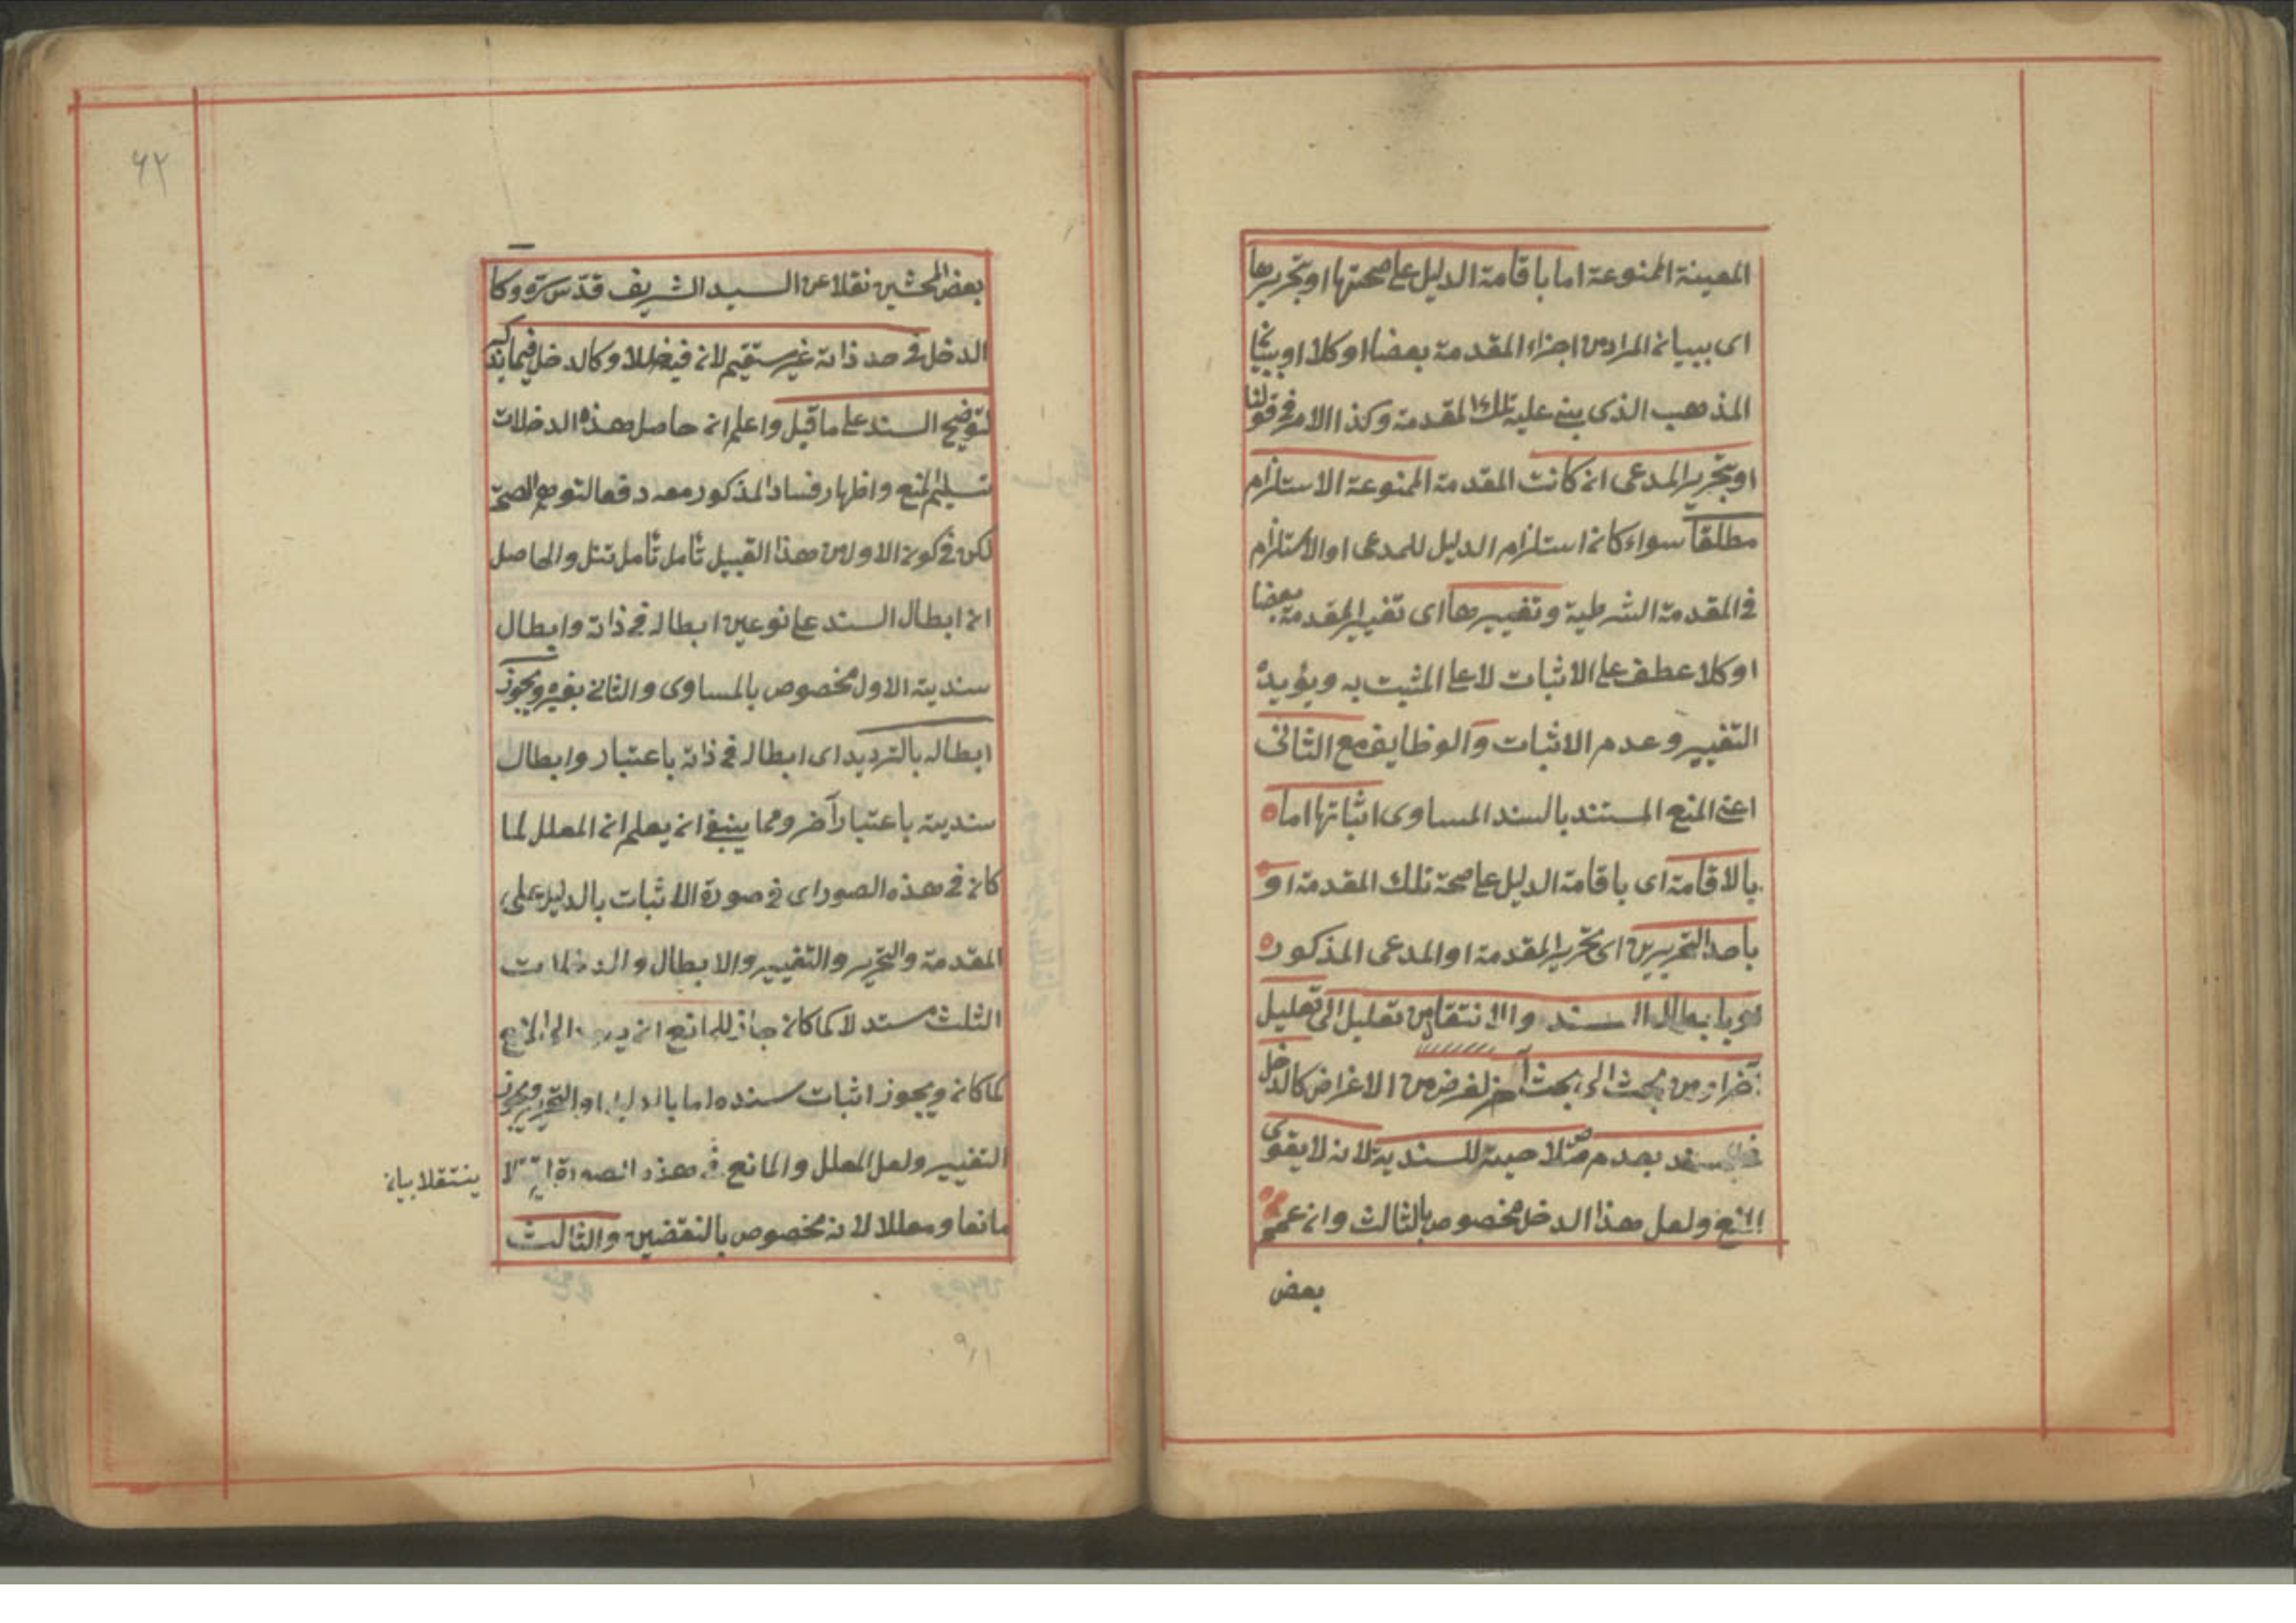 المعينة الممنوعة اما باقامة الدليل على صحتها او بتحريرها
اى ببيان المراد من اجزاء المقدمة بعضا او كلا او ببيان
المذهب الذى بنى عليه تلك المقدمة وكذا الامر فى قولنا
او بتحرير المدعى ان كانت المقدمة الممنوعة الاستلزام
مطلقا سواء كان استلزام الدليل للمدعى او الاستلزام
فى المقدمة الشرطية وتغييرها اى تغيير المقدمة بعضا
او كلا عطف على الاثبات لا على المثبت به ويؤيده
التغيير وعدم الاثبات والوظايف مع الثانى
اعنى المنع المستند بالسند المساوى اثباتها اما
بالاقامة اى باقامة الدليل على صحة تلك المقدمة او
باحد التحريرين اى تحرير المقدمة او المدعى المذكور
او بابطال السند والانتقال من تعليل الى تعليل
آخر او من بحث الى بحث آخر لغرض من الاغراض كالدخل
فى السند بعدم صلاحيته للسندية لانه لا يقوى
المنع ولعل هذا الدخل مخصوص بالثالث وان عمم
بعض
٦٢
بعض المحشين نقلا عن السيد الشريف قدس سره وكا
الدخل فى حد ذاته غير مستقيم لانه فيضل وكالدخل فيما يذكر
لتوضيح السند على ما قيل واعلم ان حاصل هذه الدخلات
تسليم المنع واظهار فساد المذكور معه دفعا لتوهم الصحة
لكن فى كون الاول من هذا القبيل تأمل تأمل تنل والحاصل
ان ابطال السند على نوعين ابطاله فى ذاته وابطال
سنديته الاول مخصوص بالمساوى والثانى بغيره ويجوز
ابطاله بالترديد اى ابطاله فى ذاته باعتبار وابطال
سنديته باعتبار آخر ومما ينبغى ان يعلم ان المعلل لما
كان فى هذه الصور اى فى صورة الاثبات بالدليل على
المقدمة والتحرير والتغيير والابطال والدخلات
الثلث مستدلا كما كان جاز للمانع ان الى المنع
كما كان ويجوز اثبات سنده اما بالدليل او التحرير ويجوز
التغيير ولعل المعلل والمانع فى هذه الصورة لا
ينتقلا بيان
مانعا ومعللا لانه مخصوص بالنقضين والثالث